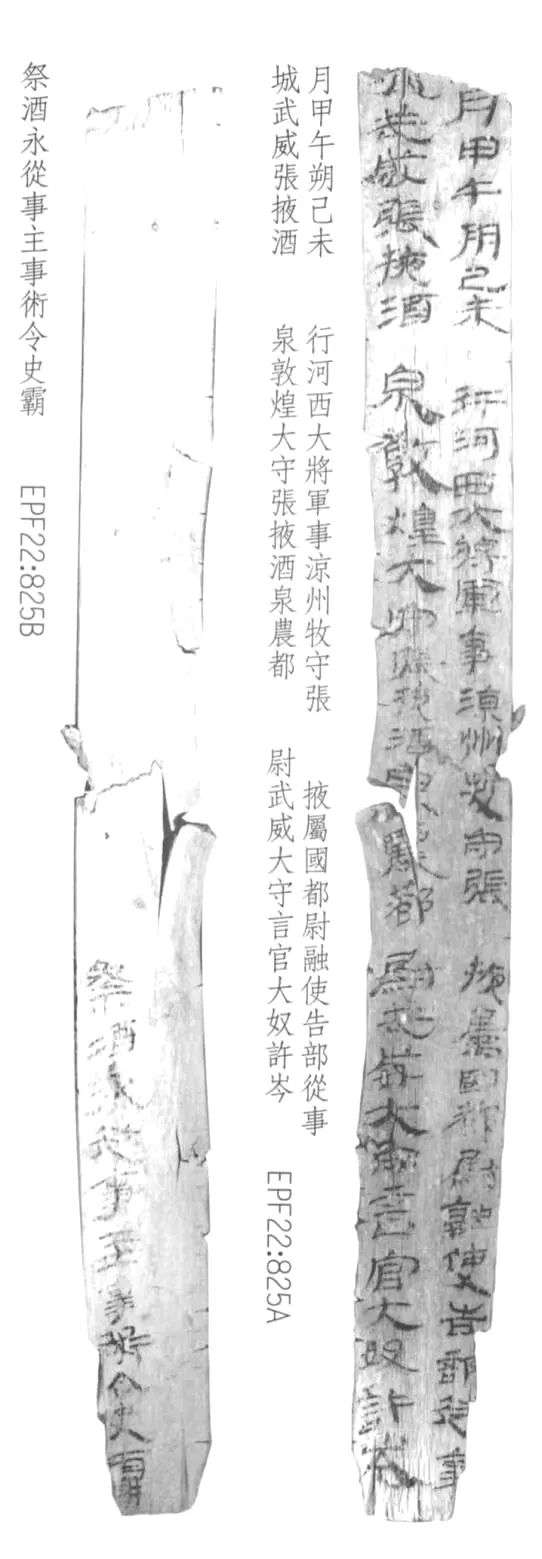 月甲午朔己未 行河西大將軍事涼州牧守張 掖屬國都尉融使告部從事
城武威張掖酒 泉敦煌大守張掖酒泉農都 尉武威大守言官大奴許岑 EPF22:825A
祭酒永從事主事術令史霸 EPF22:825B